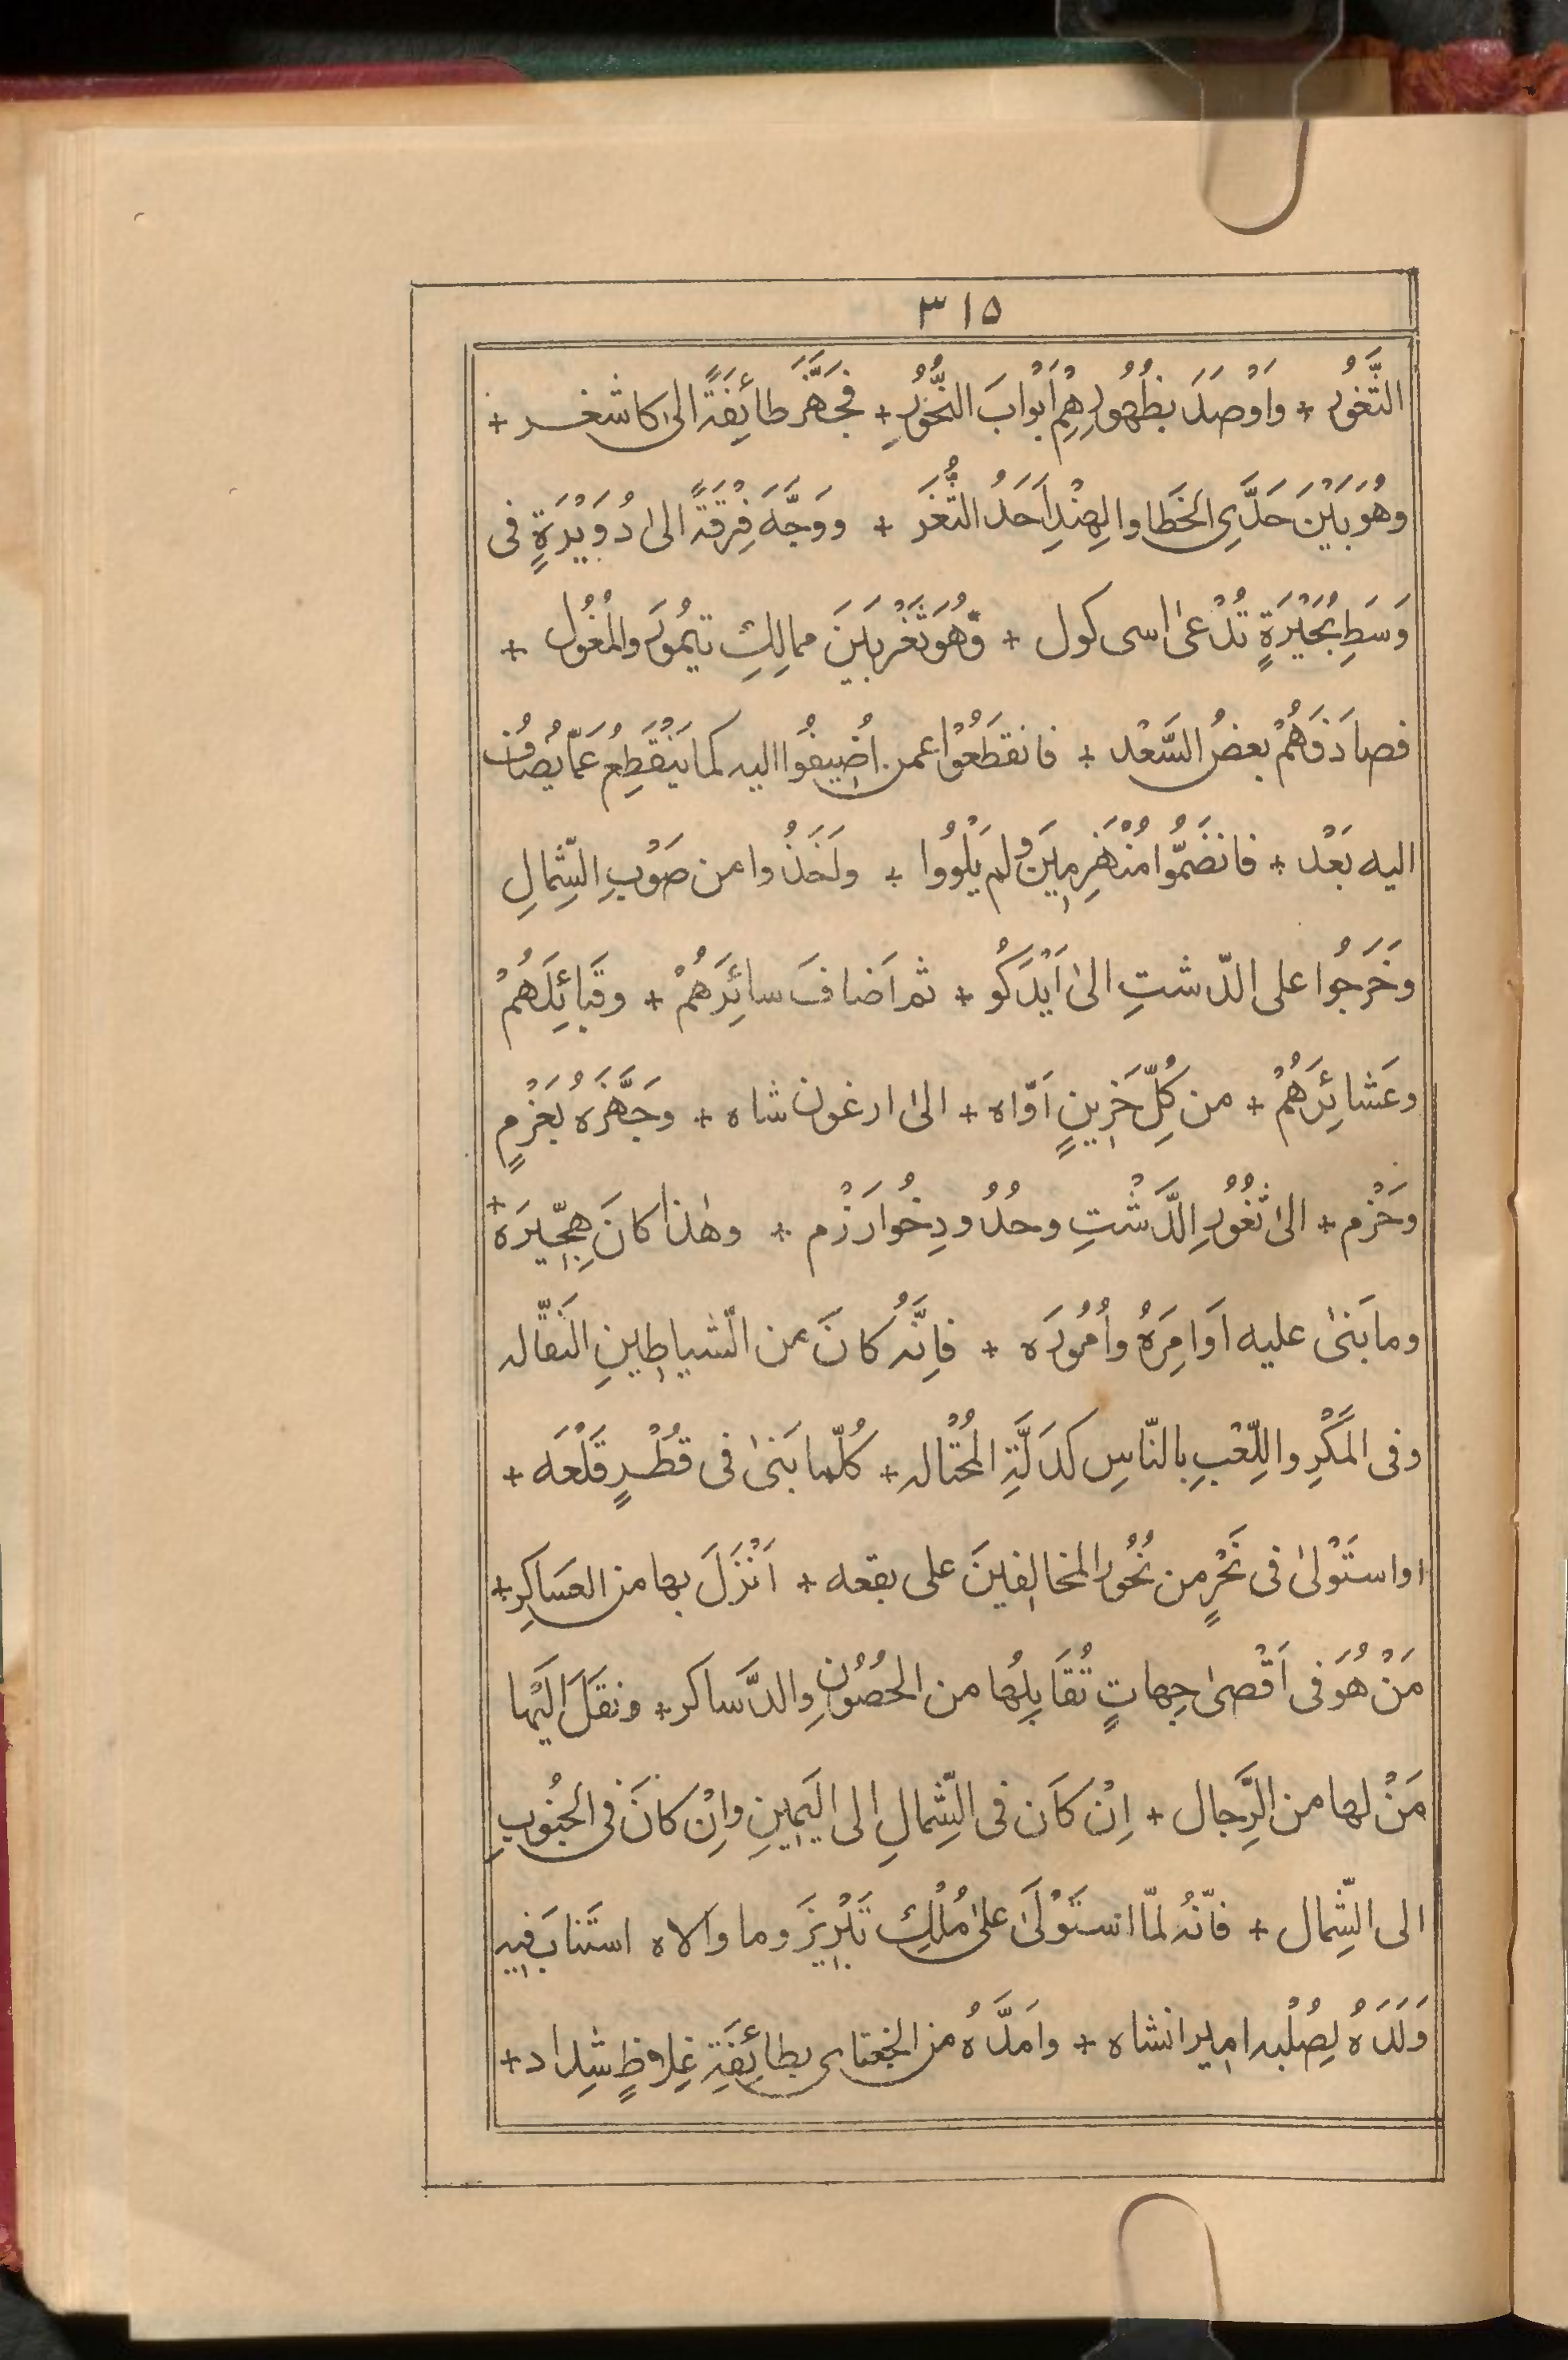 ٣١٥
الثُّغُورُ + وَاَوْصَدَ بِظُهُورِهِمْ اَبْوَابَ النُّحُوْرِ + فَجَهَّزَ طائِفَةً الى كاشغر +
وهُوَ بَيْنَ حَدَّىِ الخَطَا والهِنْدِ اَحَدُ الثُّغَر + ووَجَّهَ فِرْقَةً الى دُوَيْرَةٍ فى
وَسَطِ بُحَيْرَةٍ تُدْعىٰ اسى كول + وَّهُوَ ثَغْر بَيْنَ ممالِكِ تيمُورَ والمُغُول +
فصادَفَهُمْ بعضُ السَّعْد + فانقَطَعُوْا عمن اُضِيفُوا اليه كما يَنْقَطِعُ عَمّا يُضافُ
اليه بَعْد + فانضَمُّوا مُنْهَزِمِيْنَ ولم يَلْوُوا + ولَخَذُوا من صَوْبِ الشِّمالِ
وخَرَجُوا على الدّشتِ الىٰ اَيْدَكُو + ثم اَضافَ سائِرَهُمْ + وقَبائِلَهُمْ
وعَشائِرَهُمْ + من كُلِّ حَزِينٍ اَوّاه + الىٰ ارغون شاه + وجَهَّزَهُ بعَزْمٍ
وحَزْم + الىٰ ثُغُوْرِ الدَّشْتِ وحُدُودِ خُوارَزْم + وهٰذا كانَ هِجِّيرَهُ +
وما بَنىٰ عليه اَوامِرَهُ واُمُورَه + فاِنَّهُ كانَ من الشّياطِينِ النَّقّاله
وفى المَكْرِ واللِّعْبِ بالنّاسِ كدَلَّةِ المُحْتاله + كُلَّما بَنىٰ فى قُطْرٍ قَلْعَه +
اواستَوْلىٰ فى نَحْرٍ من نُحُورِ المخالِفينَ على بقعه + اَنْزَلَ بها من العَساكِرِ +
مَنْ هُوَ فى اَقْصىٰ جِهاتٍ تُقَابِلُها من الحُصُوْنِ والدَّساكر + ونقَلَ اِلَيْها
مَنْ لها من الرِّجال + اِنْ كاَن فى الشِّمالِ الى اليَمِينِ واِنْ كانَ فى الجَنُوبِ
الى الشِّمال + فاّنّهُ لمّا استَوْلَىٰ علىٰ مُلْكِ تَبْرِيزَ وما والاه استَنابَ فيه
وَلَدَهُ لِصُلْبه اميرانشاه + وامَدَّهُ من الجغتاى بطائِفَةِ غِلاظٍ شِداد +